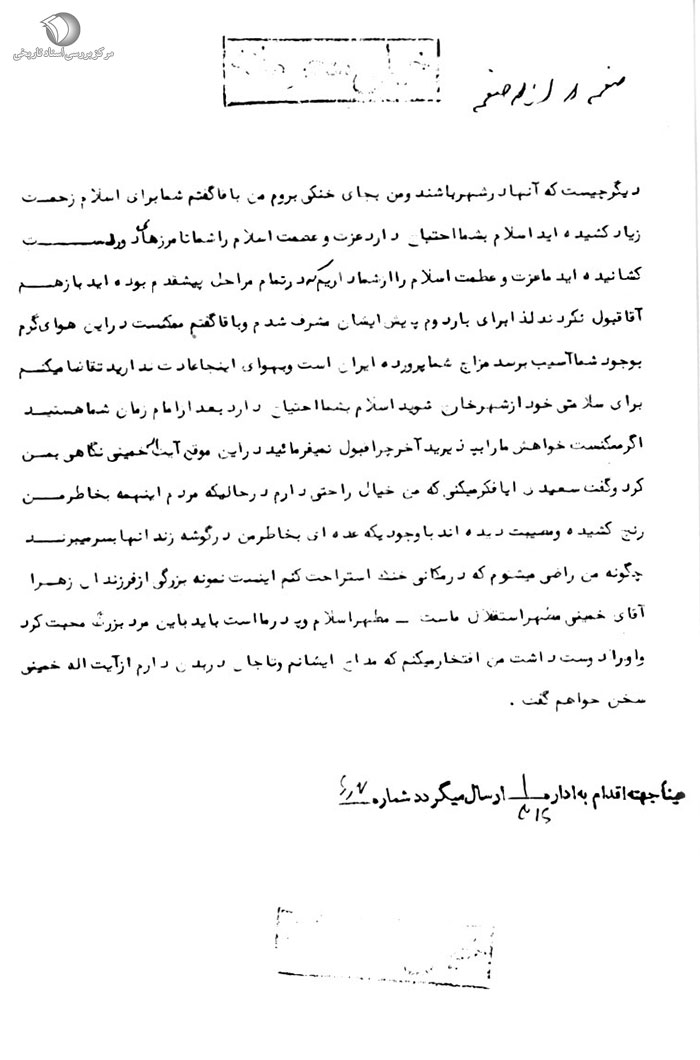 مرکز بررسی اسناد تاریخی
صفحه از صفحه
دیگر چیست که آنها در شهر باشند و من بجای خنکی بروم من باقا گفتم شما برای اسلام زحمت
زیاد کشیده اید اسلام بشما احتیاج دارد عزت و عصمت اسلام را شما تا مرزهای دوردست
کشانیده اید ما عزت و عظمت اسلام را از شما داریم که در تمام مراحل پیشقدم بوده اید باز هم
آقا قبول نکردند لذا برای بار دوم پیش ایشان مشرف شدم و باقا گفتم ممکنست در این هوای گرم
بوجود شما آسیب برسد مزاج شما پرورده ایران است و بهوای اینجا عادت ندارید تقاضا میکنم
برای سلامتی خود از شهر خارج شوید اسلام بشما احتیاج دارد بعد از امام زمان شما هستید
اگر ممکنست خواهش ما را بپذیرید آخر چرا قبول نمیفرمائید در این موقع آیت اله خمینی نگاهی بمن
کرد و گفت سعیدی ایا فکر میکنی که من خیال راحتی دارم در حالیکه مردم اینهمه بخاطر من
رنج کشیده و مصیبت دیده اند با وجود یکه عده ای بخاطر من در گوشه زندانها بسر میبرند
چگونه من راضی میشوم که در مکانی خنک استراحت کنم اینست نمونه بزرگی از فرزندان زهرا
آقای خمینی مظهر استقلال ماست – مظهر اسلام و پدر ما است باید باین مرد بزرگ محبت کرد
و او را دوست داشت من افتخار میکنم که مداح ایشانم و تا جان در بدن دارم از آیت اله خمینی
سخن خواهم گفت .
عیناً جهته اقدام به اداره ارسال میگردد شماره